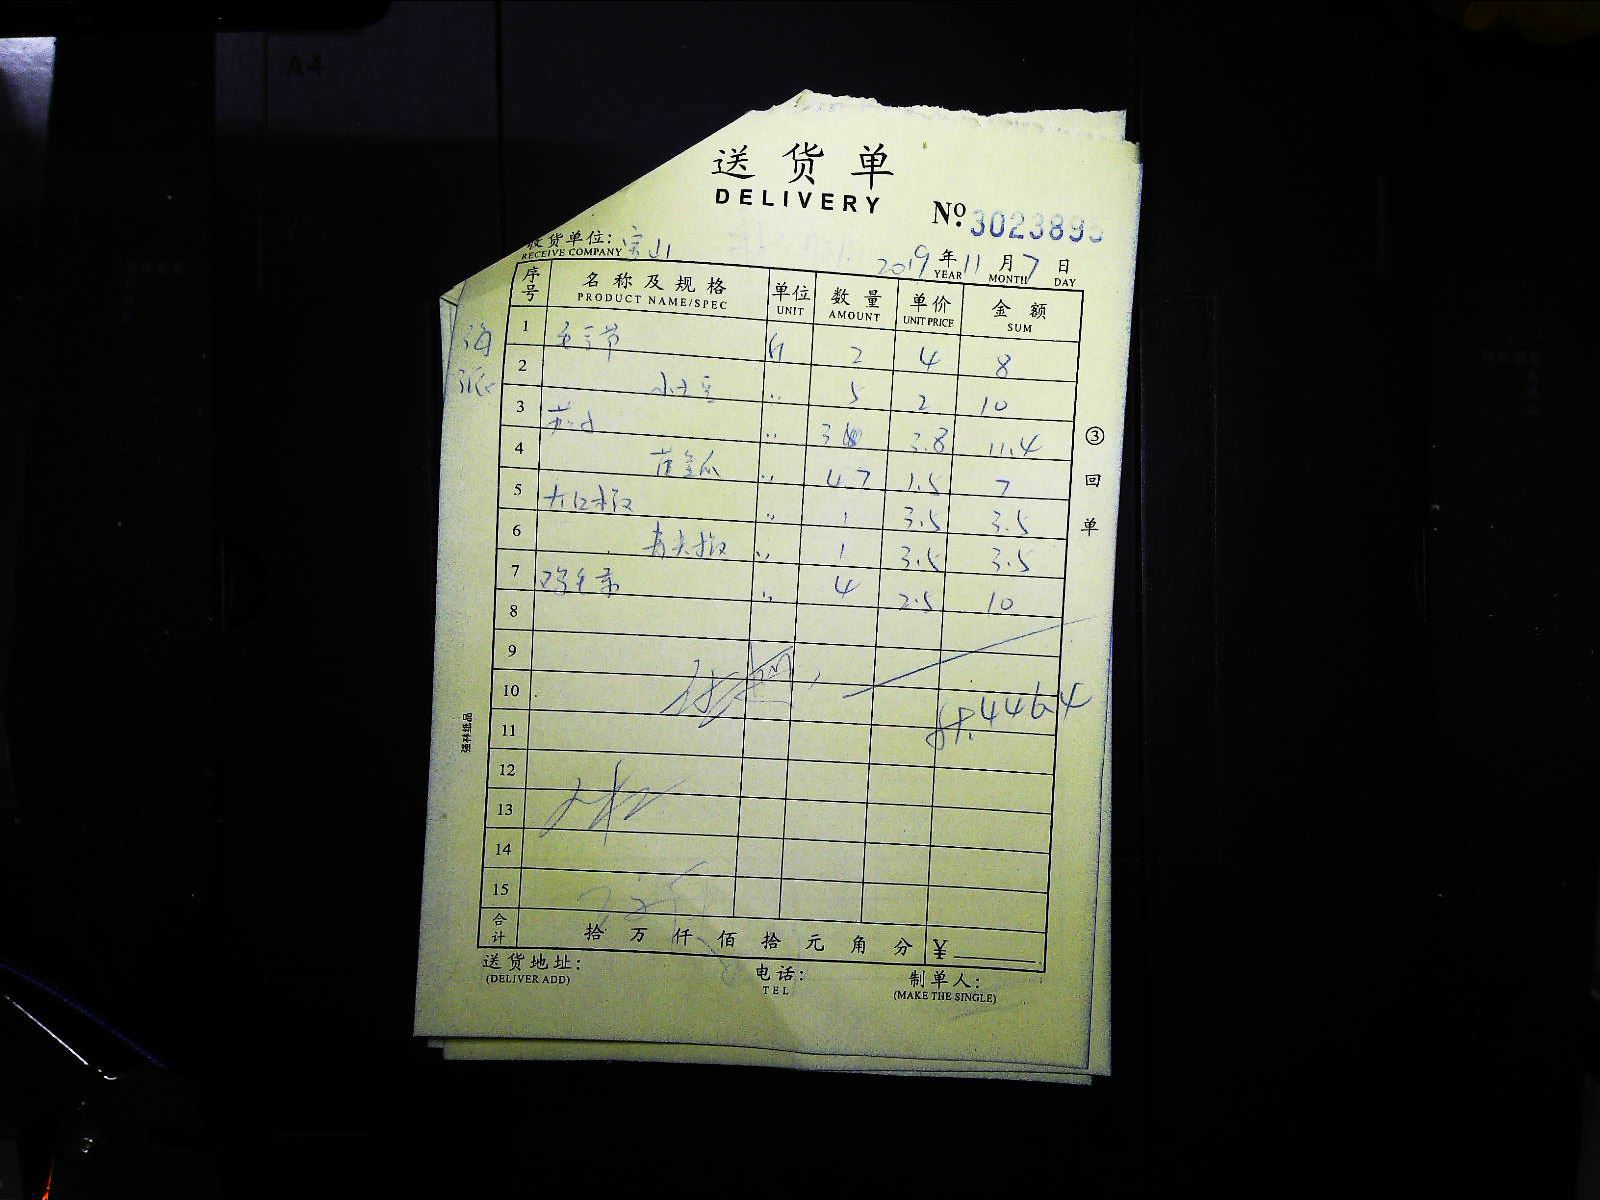 A4
送货单
DELIVERY
No. 3023895
收货单位: 宝山
RECEIVE COMPANY
2019年11月7日
YEAR MONTH DAY
序号 名称及规格 单位 数量 单价 金额
PRODUCT NAME/SPEC UNIT AMOUNT UNIT PRICE SUM
海
派
1 斤 2 4 8
2 小土豆 〃 5 2 10
3 〃 3 3.8 11.4
4 黄金瓜 〃 4.7 1.5 7
5 大红椒 〃 1 3.5 3.5
6 青大椒 〃 1 3.5 3.5
7 鸡毛菜 〃 4 2.5 10
8
9
10
11
12
13
14
15
合计 拾万仟佰拾元角分 ¥
送货地址: 电话: 制单人:
(DELIVER ADD) TEL (MAKE THE SINGLE)
③回单
强林纸品